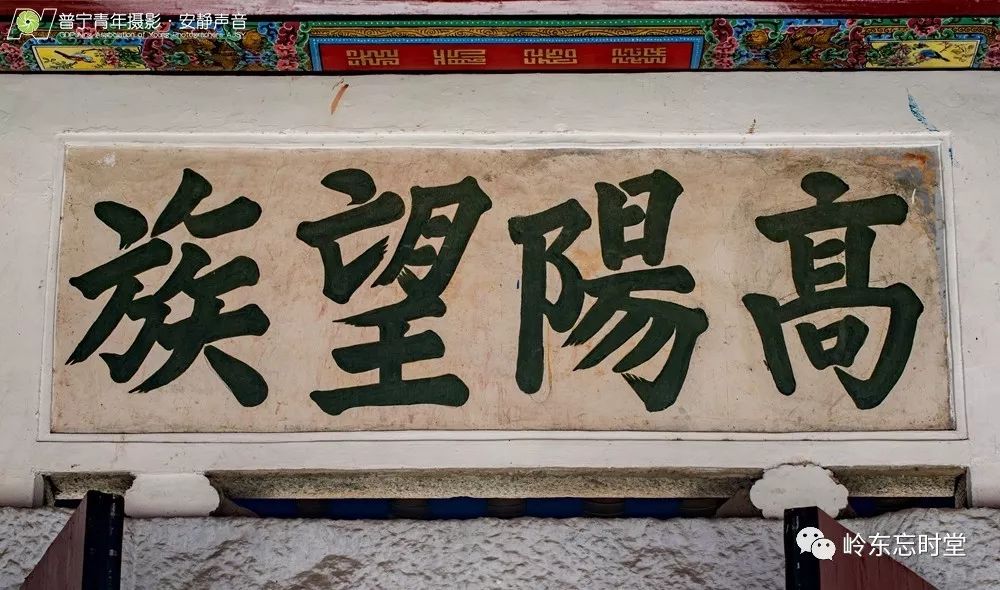 普宁青年摄影·安静声音
髙陽望族
岭东忘时堂